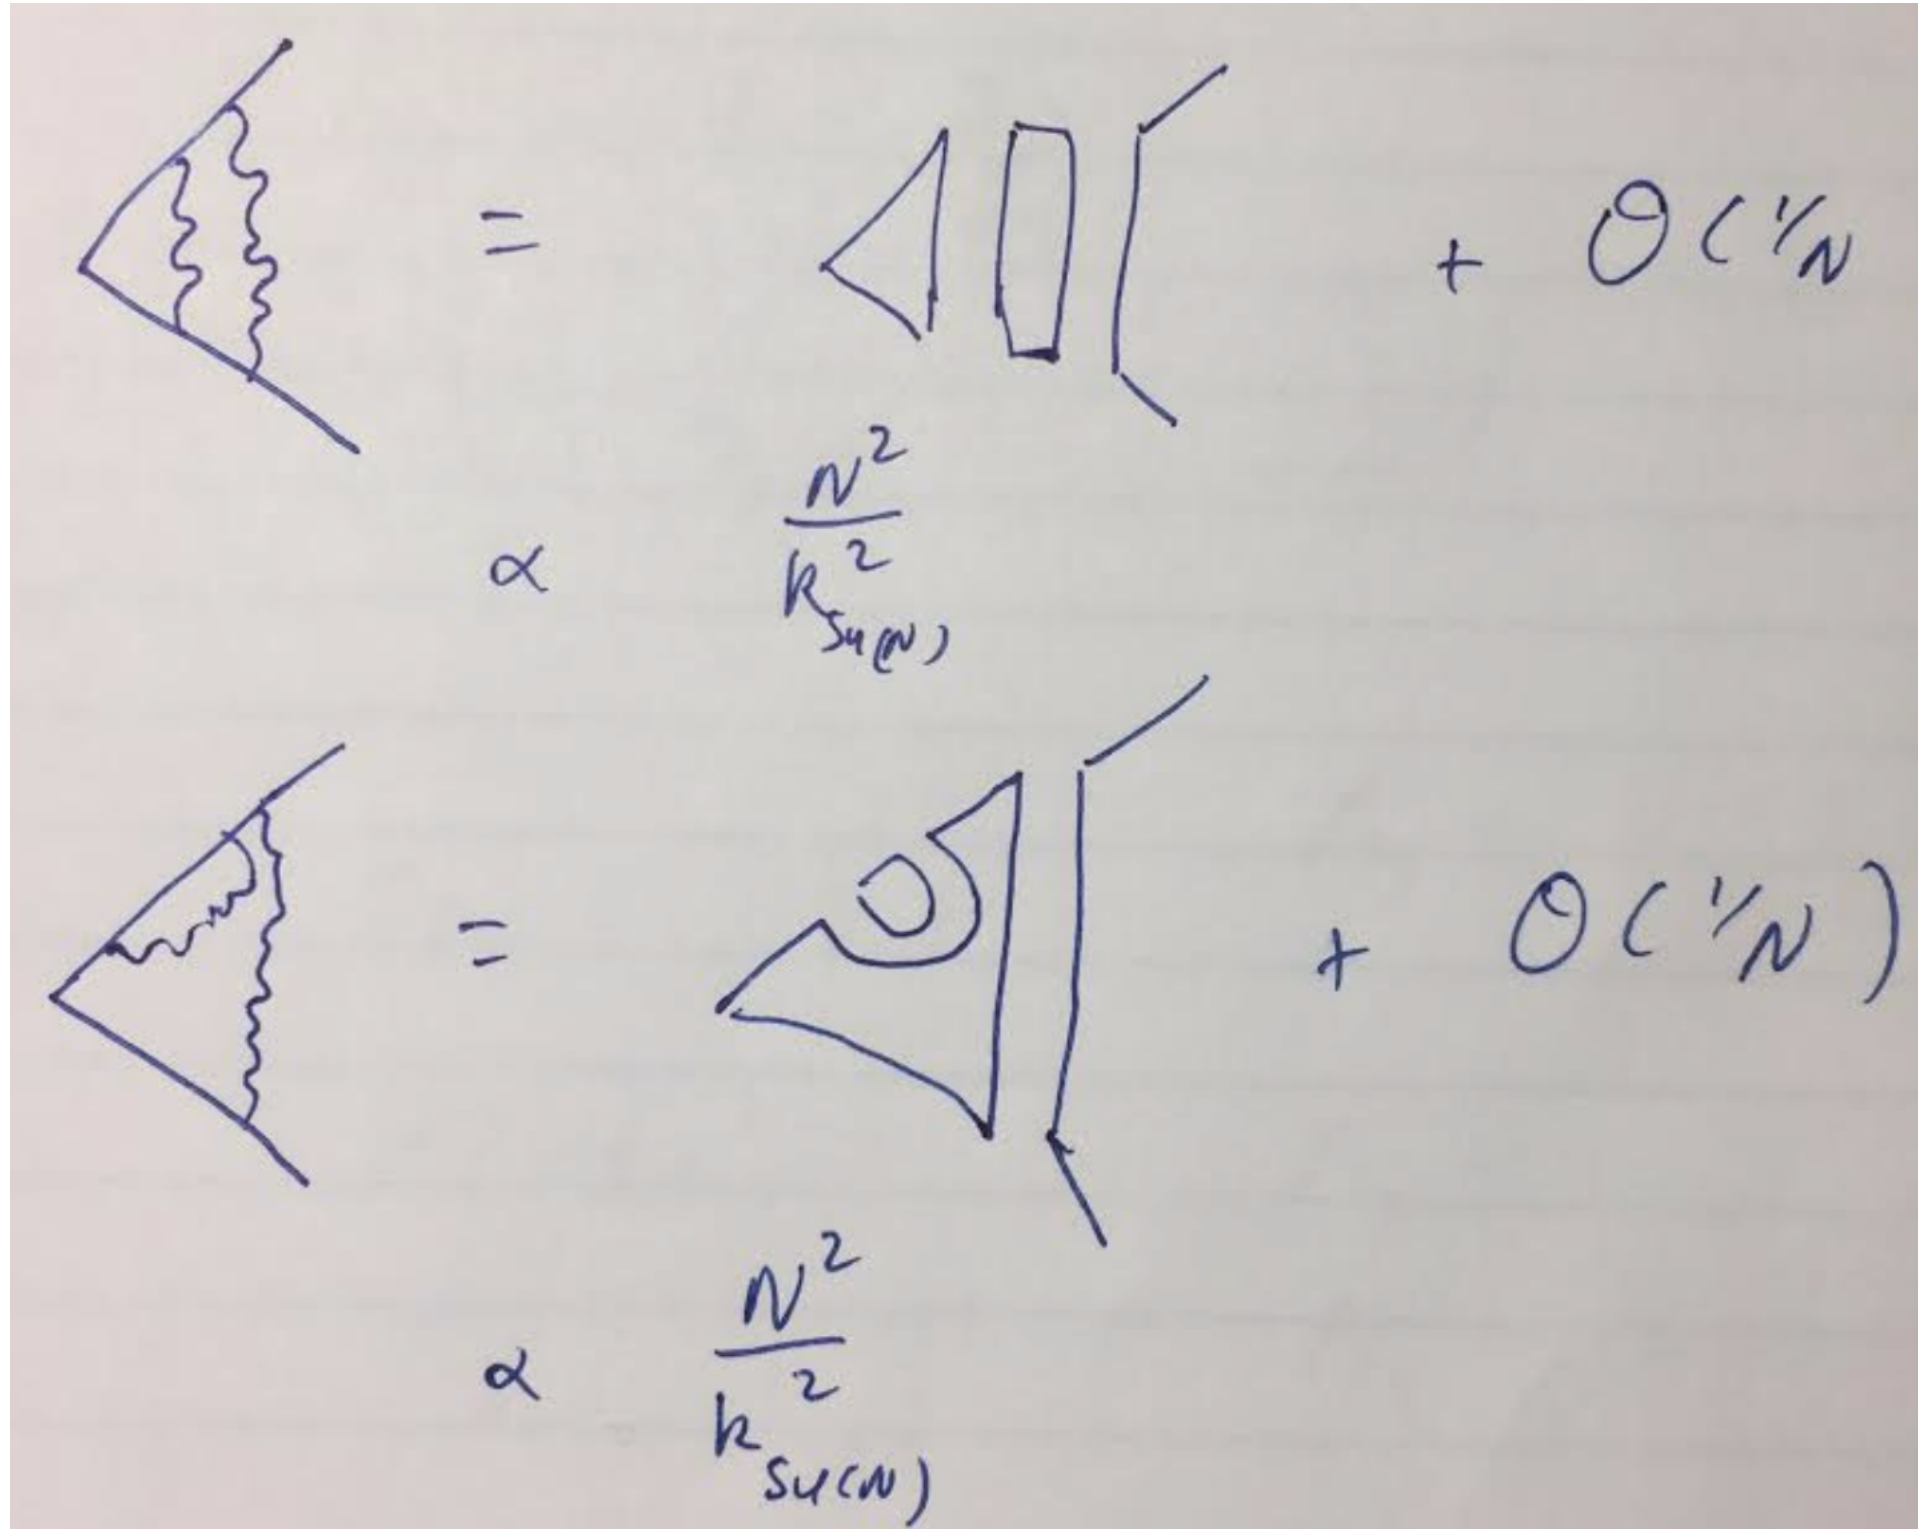 = + O(1/N
∝ N² / k²_SU(N)
= + O(1/N)
∝ N² / k²_SU(N)